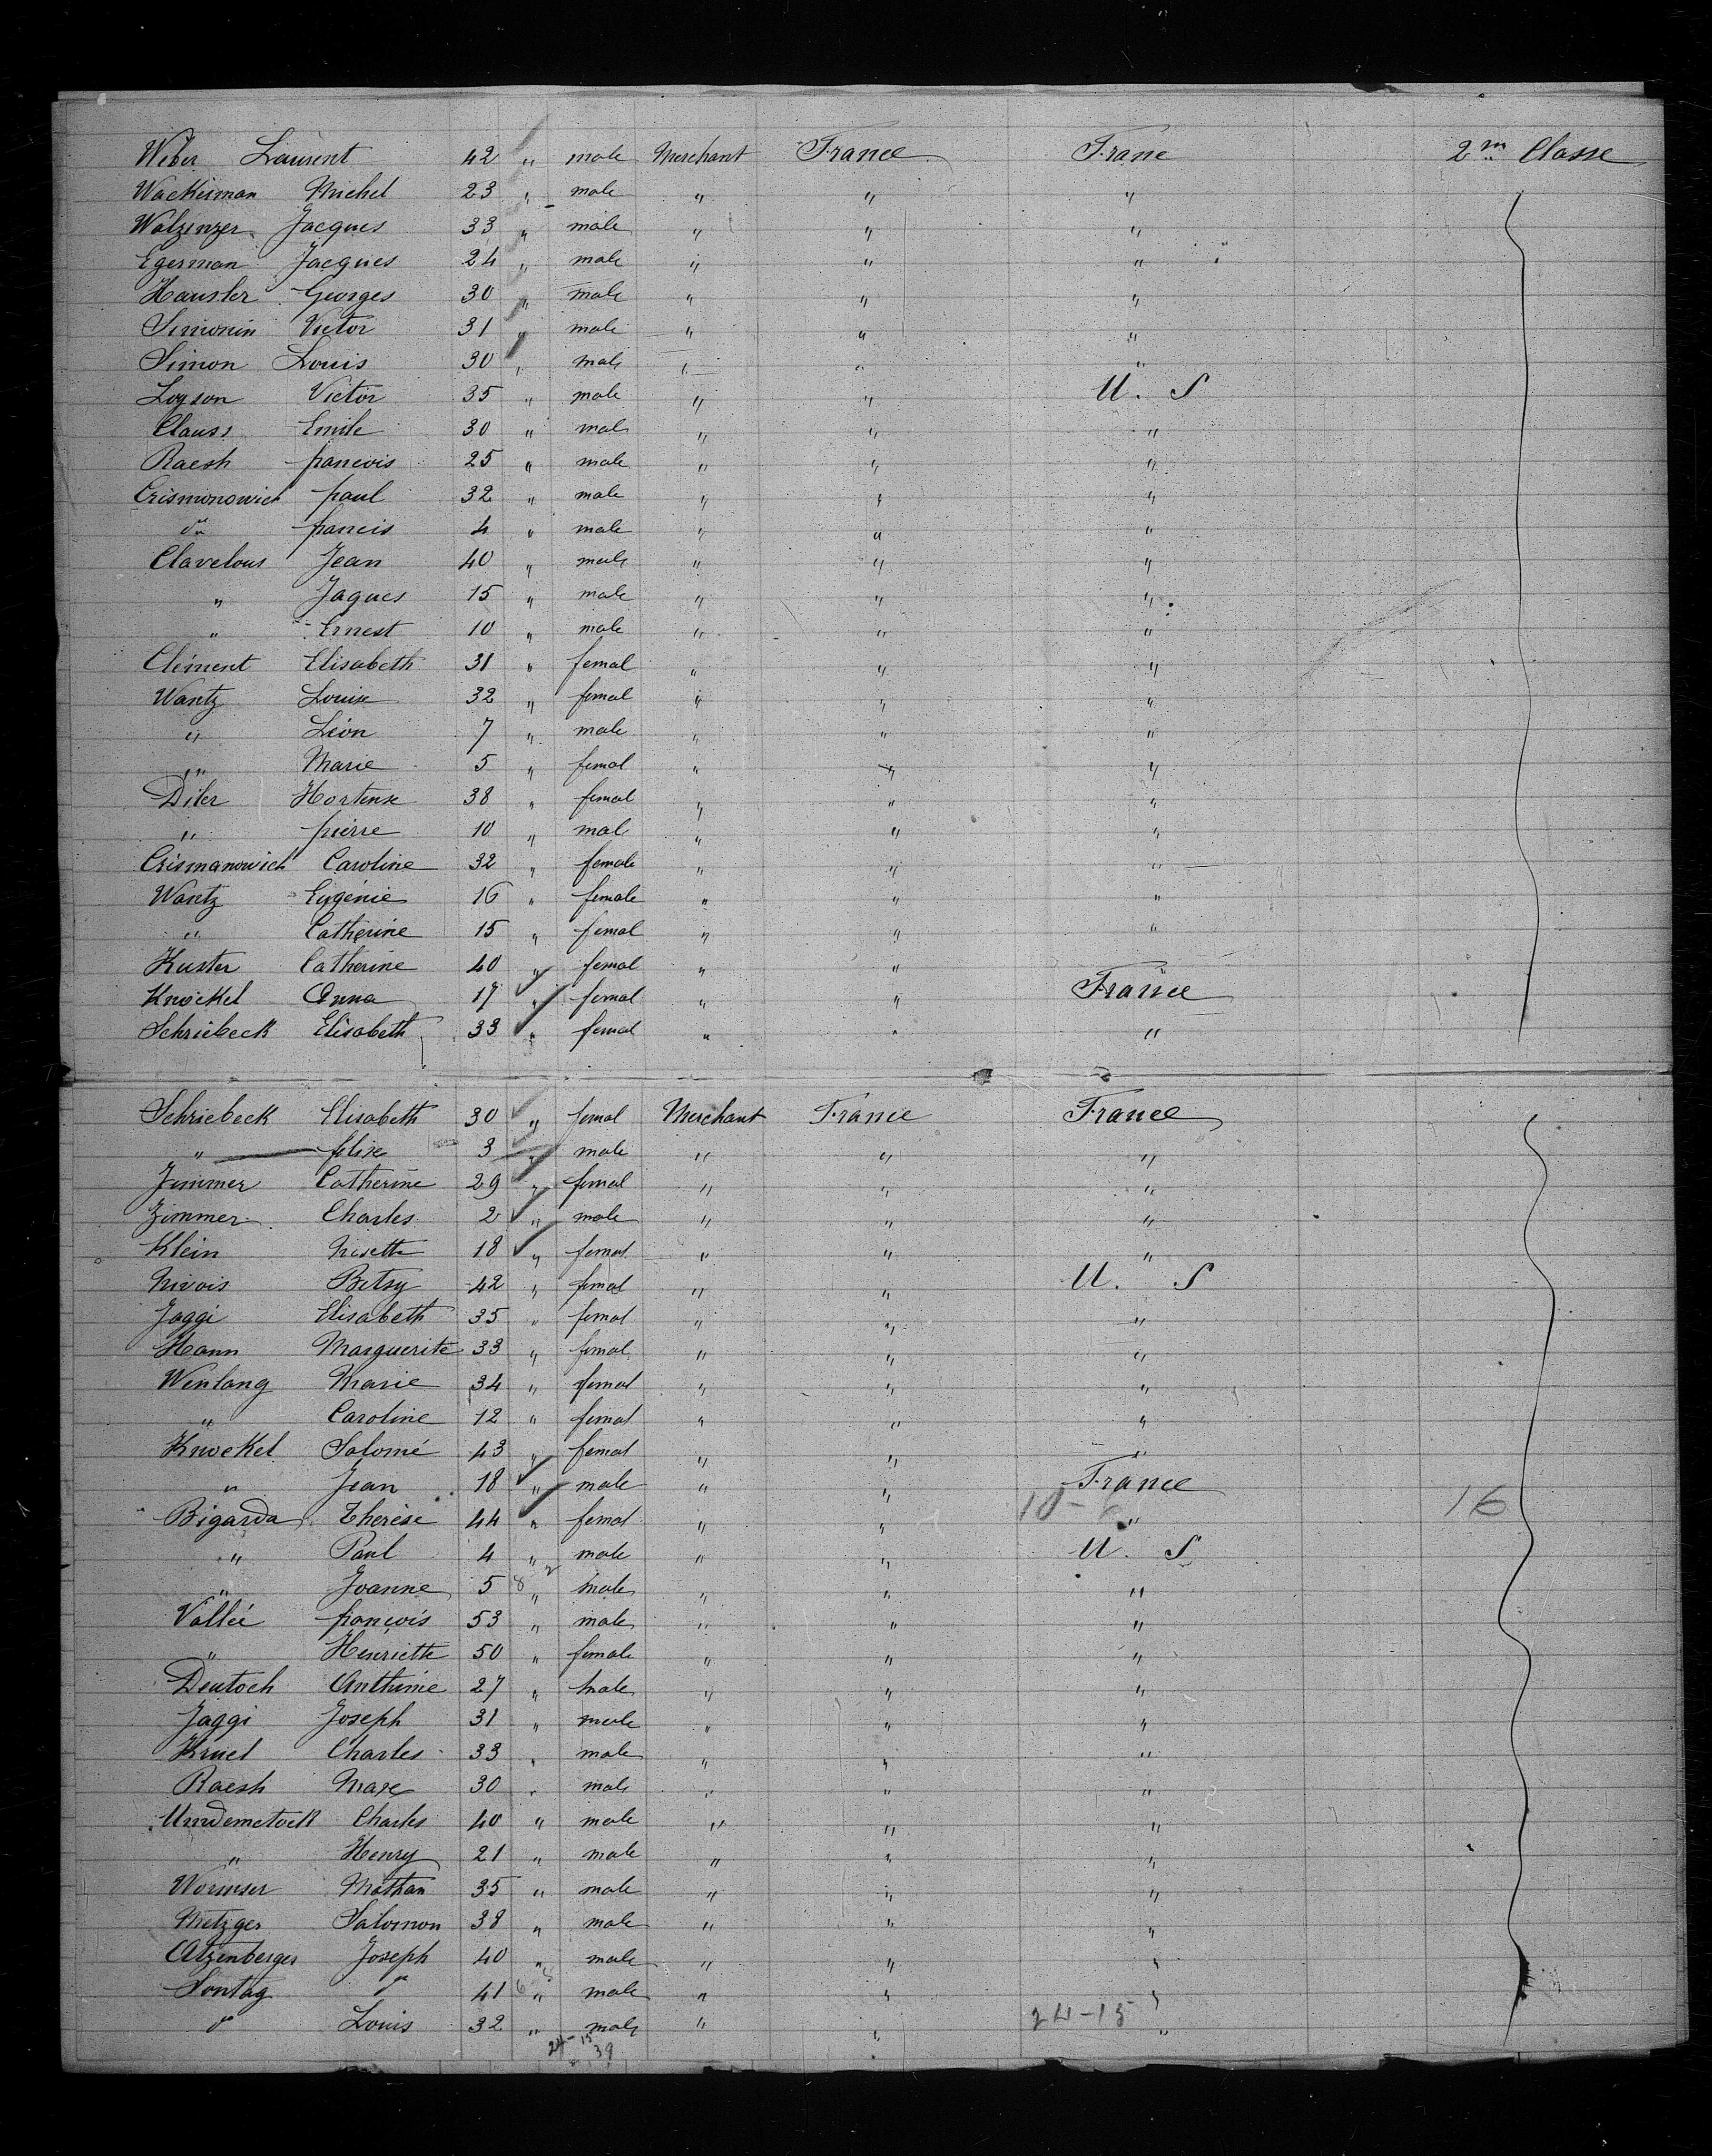 Weber Laurent 42 " male Merchant France Frane 2m Classe
Wackerman Michel 23 " male " " "
Walzenzer Jacques 33 " male " " "
Egerman Jacques 24 " male " " "
Hausler Georges 30 " male " " "
Simonin Victor 31 " male " " "
Simon Louis 30 " male " " "
Logson Victor 35 " male " " U. S
Clauss Emile 30 " male " " "
Raesh francois 25 " male " " "
Crismonowich paul 32 " male " " "
do francis 4 " male " " "
Clavelous Jean 40 " male " " "
" Jaques 15 " male " " "
" Ernest 10 " male " " "
Clément Elisabeth 31 " femal " " "
Wantz Louise 32 " femal " " "
" Léon 7 " male " " "
" Marie 5 " femal " " "
Diler Hortense 38 " femal " " "
" pierre 10 " mal " " "
Crismanowich Caroline 32 " female " " "
Wantz Eugénie 16 " female " " "
" Catherine 15 " femal " " "
Kuster Catherine 40 " femal " " "
Knockel Anna 17 " femal " " France
Schriebeck Elisabeth 33 " femal " " "
Schriebeck Elisabeth 30 " femal Merchant France France
" felix 3 " male " " "
Zimmer Catherine 29 " femal " " "
Zimmer Charles 2 " male " " "
Klein Nisette 18 " femal " " "
Nivois Betsy 42 " femal " " U. S
Jaggi Elisabeth 35 " femal " " "
Hann Marguerite 33 " femal " " "
Wenlang Marie 34 " femal " " "
" Caroline 12 " femal " " "
Knockel Salomé 43 " femal " " "
" Jean 18 " male " " France
Bigarda Therèse 44 " femal " " " 16
" Paul 4 " male " " U. S
" Joanne 5 " male " " "
Vallée françois 53 " male " " "
" Henriette 50 " female " " "
Deutoch Anthime 27 " male " " "
Jaggi Joseph 31 " male " " "
Kruel Charles 33 " male " " "
Raesh Maxe 30 " male " " "
Undemetock Charles 40 " male " " "
" Henry 21 " male " " "
Wormser Mathan 35 " male " " "
Metzger Salomon 38 " male " " "
Atzenberger Joseph 40 " male " " "
Sontag do 41 " male " " "
do Louis 32 " male " " 24-15 "
24-15
39